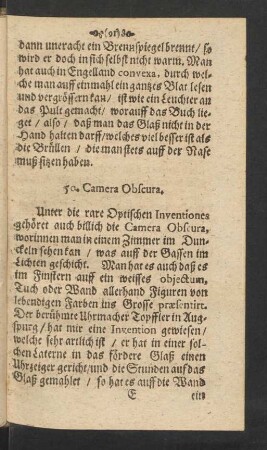 (91)
dann uneracht ein Brennspiegel brennt / so
wird er doch in sich selbst nicht warm. Man
hat auch in Engelland convexa, durch wel-
che man auff einmahl ein gantzes Blat lesen
und vergrössern kan / ist wie ein Leuchter an
das Pult gemacht / worauff das Buch lie-
get / also / daß man das Glaß nicht in der
Hand halten darff / welches viel besser ist als
die Brüllen / die man stets auff der Nase
muß sitzen haben.
50. Camera Obscura.
Unter die rare Optischen Inventiones
gehöret auch billich die Camera Obscura,
worinnen man in einem Zimmer im Dun-
ckeln sehen kan / was auff der Gassen im
Lichten geschicht. Man hat es auch daß es
im Finstern auff ein weisses objectum,
Tuch oder Wand allerhand Figuren von
lebendigen Farben ins Grosse præsentirt.
Der berühmte Uhrmacher Topffler in Aug-
spurg / hat mir eine Invention gewiesen /
welche sehr artlich ist / er hat in einer sol-
chen Laterne in das fördere Glaß einen
Uhrzeiger gericht / und die Stunden auff das
Glaß gemahlet / so hat es auff die Wand
E ein